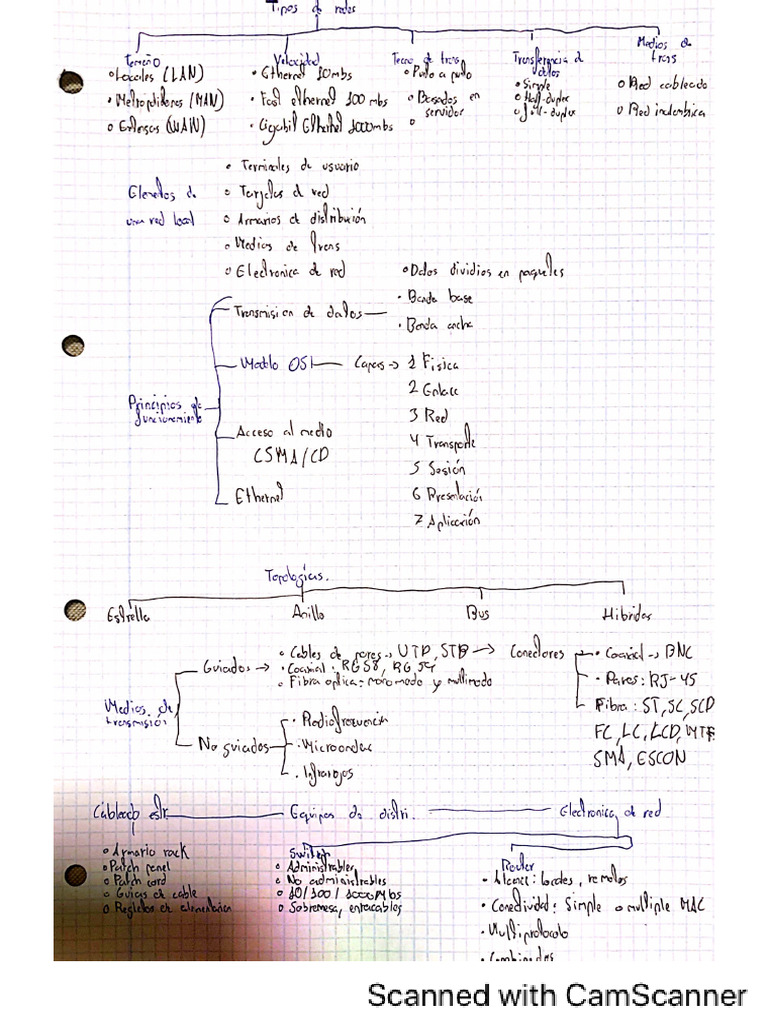 Tipos de redes
Tamaño
Locales (LAN)
Metropolitanas (MAN)
Extensas (WAN)
Velocidad
Ethernet 10mbs
Fast ethernet 100 mbs
Gigabit Ethernet 1000mbs
Tecno de trans
Punto a punto
Basados en
servidor
Transferencia d
datos
Simple
Half-duplex
full-duplex
Medios de
trans
Red cableado
Red inalambrica
Elementos de
una red local
Terminales de usuario
Tarjetas d red
Armarios d distribución
Medios de trans
Electronica de red
Principios de
funcionamiento
Transmision de datos
Datos dividios en paquetes
Banda base
Banda ancha
Modelo OSI
Capas → 1 Fisica
2 Enlace
3 Red
4 Transporte
5 Sesión
6 Presentación
7 Aplicación
Acceso al medio
CSMA/CD
Ethernet
Topologías.
Estrella
Anillo
Bus
Hibridas
Medios de
transmisión
Guiados →
Cables de pares → UTP, STP → Conectores
Coaxial: RG58, RG59
Fibra optica: monomodo y multimodo
Coaxial → BNC
Pares: RJ-45
Fibra: ST, SC, SCD
FC, LC, LCD, MTF
SMA, ESCON
No guiados
Radiofrecuencia
Microondas
Infrarojos
Cableado estr.
Armario rack
Patch panel
Patch cord
Guias de cable
Regletas de alimentación
Equipos de distri.
Electronica de red
Switch
Administrables
No administrables
10/100/1000Mbs
Sobremesa, enracables
Router
Alcance: locales, remotos
Conectividad: Simple o multiple MAC
Multiprotocolo
Combinados
Scanned with CamScanner